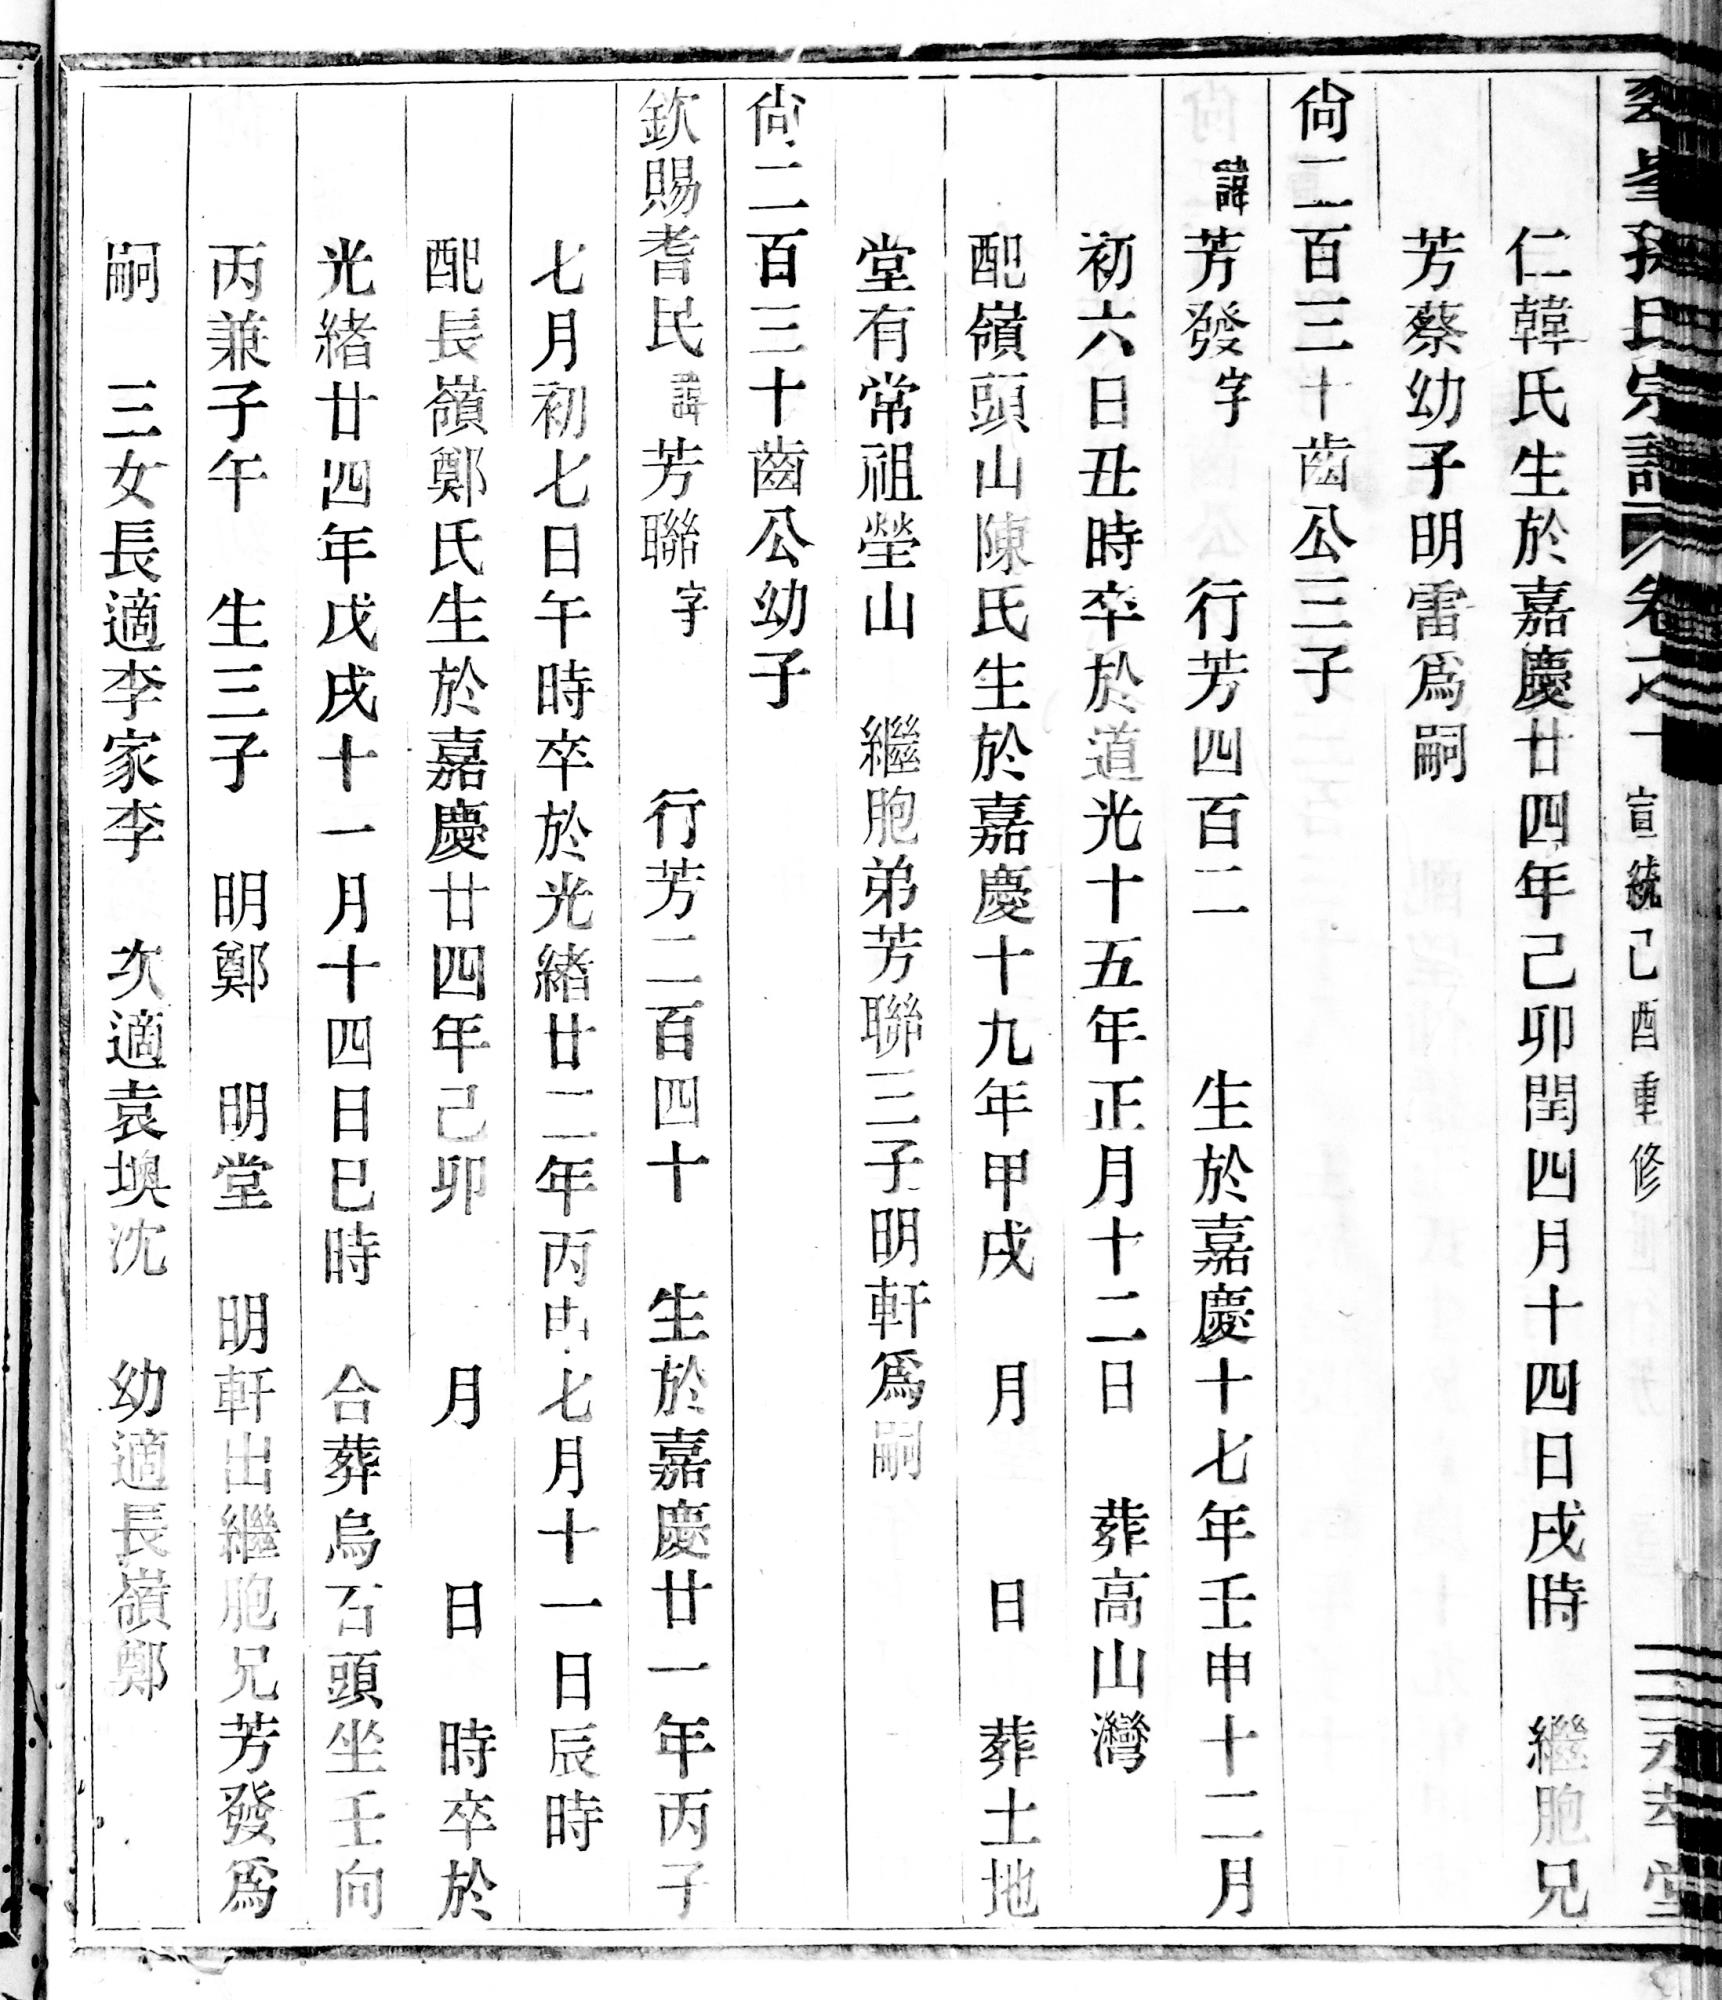 孫氏宗譜 卷之十 宣統己酉重修 堂
仁韓氏生於嘉慶廿四年己卯閏四月十四日戌時 繼胞兄
芳蔡幼子明雷爲嗣
尙二百三十齒公三子
諱芳發字 行芳四百二 生於嘉慶十七年壬申十二月
初六日丑時卒於道光十五年正月十二日 葬高山灣
配嶺頭山陳氏生於嘉慶十九年甲戌 月 日 葬土地
堂有常祖塋山 繼胞弟芳聯三子明軒爲嗣
尙二百三十齒公幼子
欽賜耆民諱芳聯字 行芳二百四十 生於嘉慶廿一年丙子
七月初七日午時卒於光緒廿二年丙申七月十一日辰時
配長嶺鄭氏生於嘉慶廿四年己卯 月 日 時卒於
光緒廿四年戊戌十一月十四日巳時 合葬烏石頭坐壬向
丙兼子午 生三子 明鄭 明堂 明軒出繼胞兄芳發爲
嗣 三女長適李家李 次適袁墺沈 幼適長嶺鄭